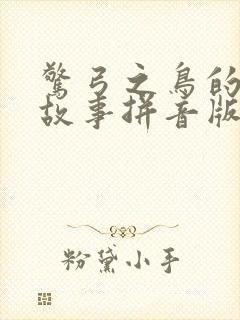 驚弓之鳥的
故事拼音版
粉黛小手